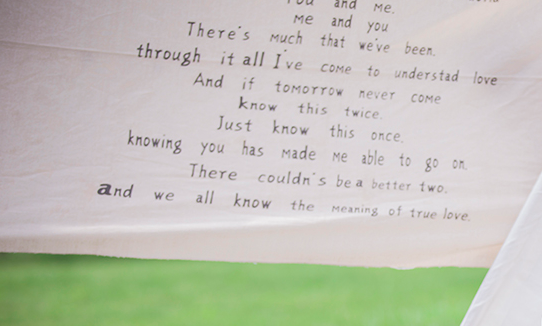 You and me.
me and you
There's much that we've been.
through it all I've come to understad love
And if tomorrow never come
know this twice.
Just know this once.
knowing you has made me able to go on.
There couldn's be a better two.
and we all know the meaning of true love.